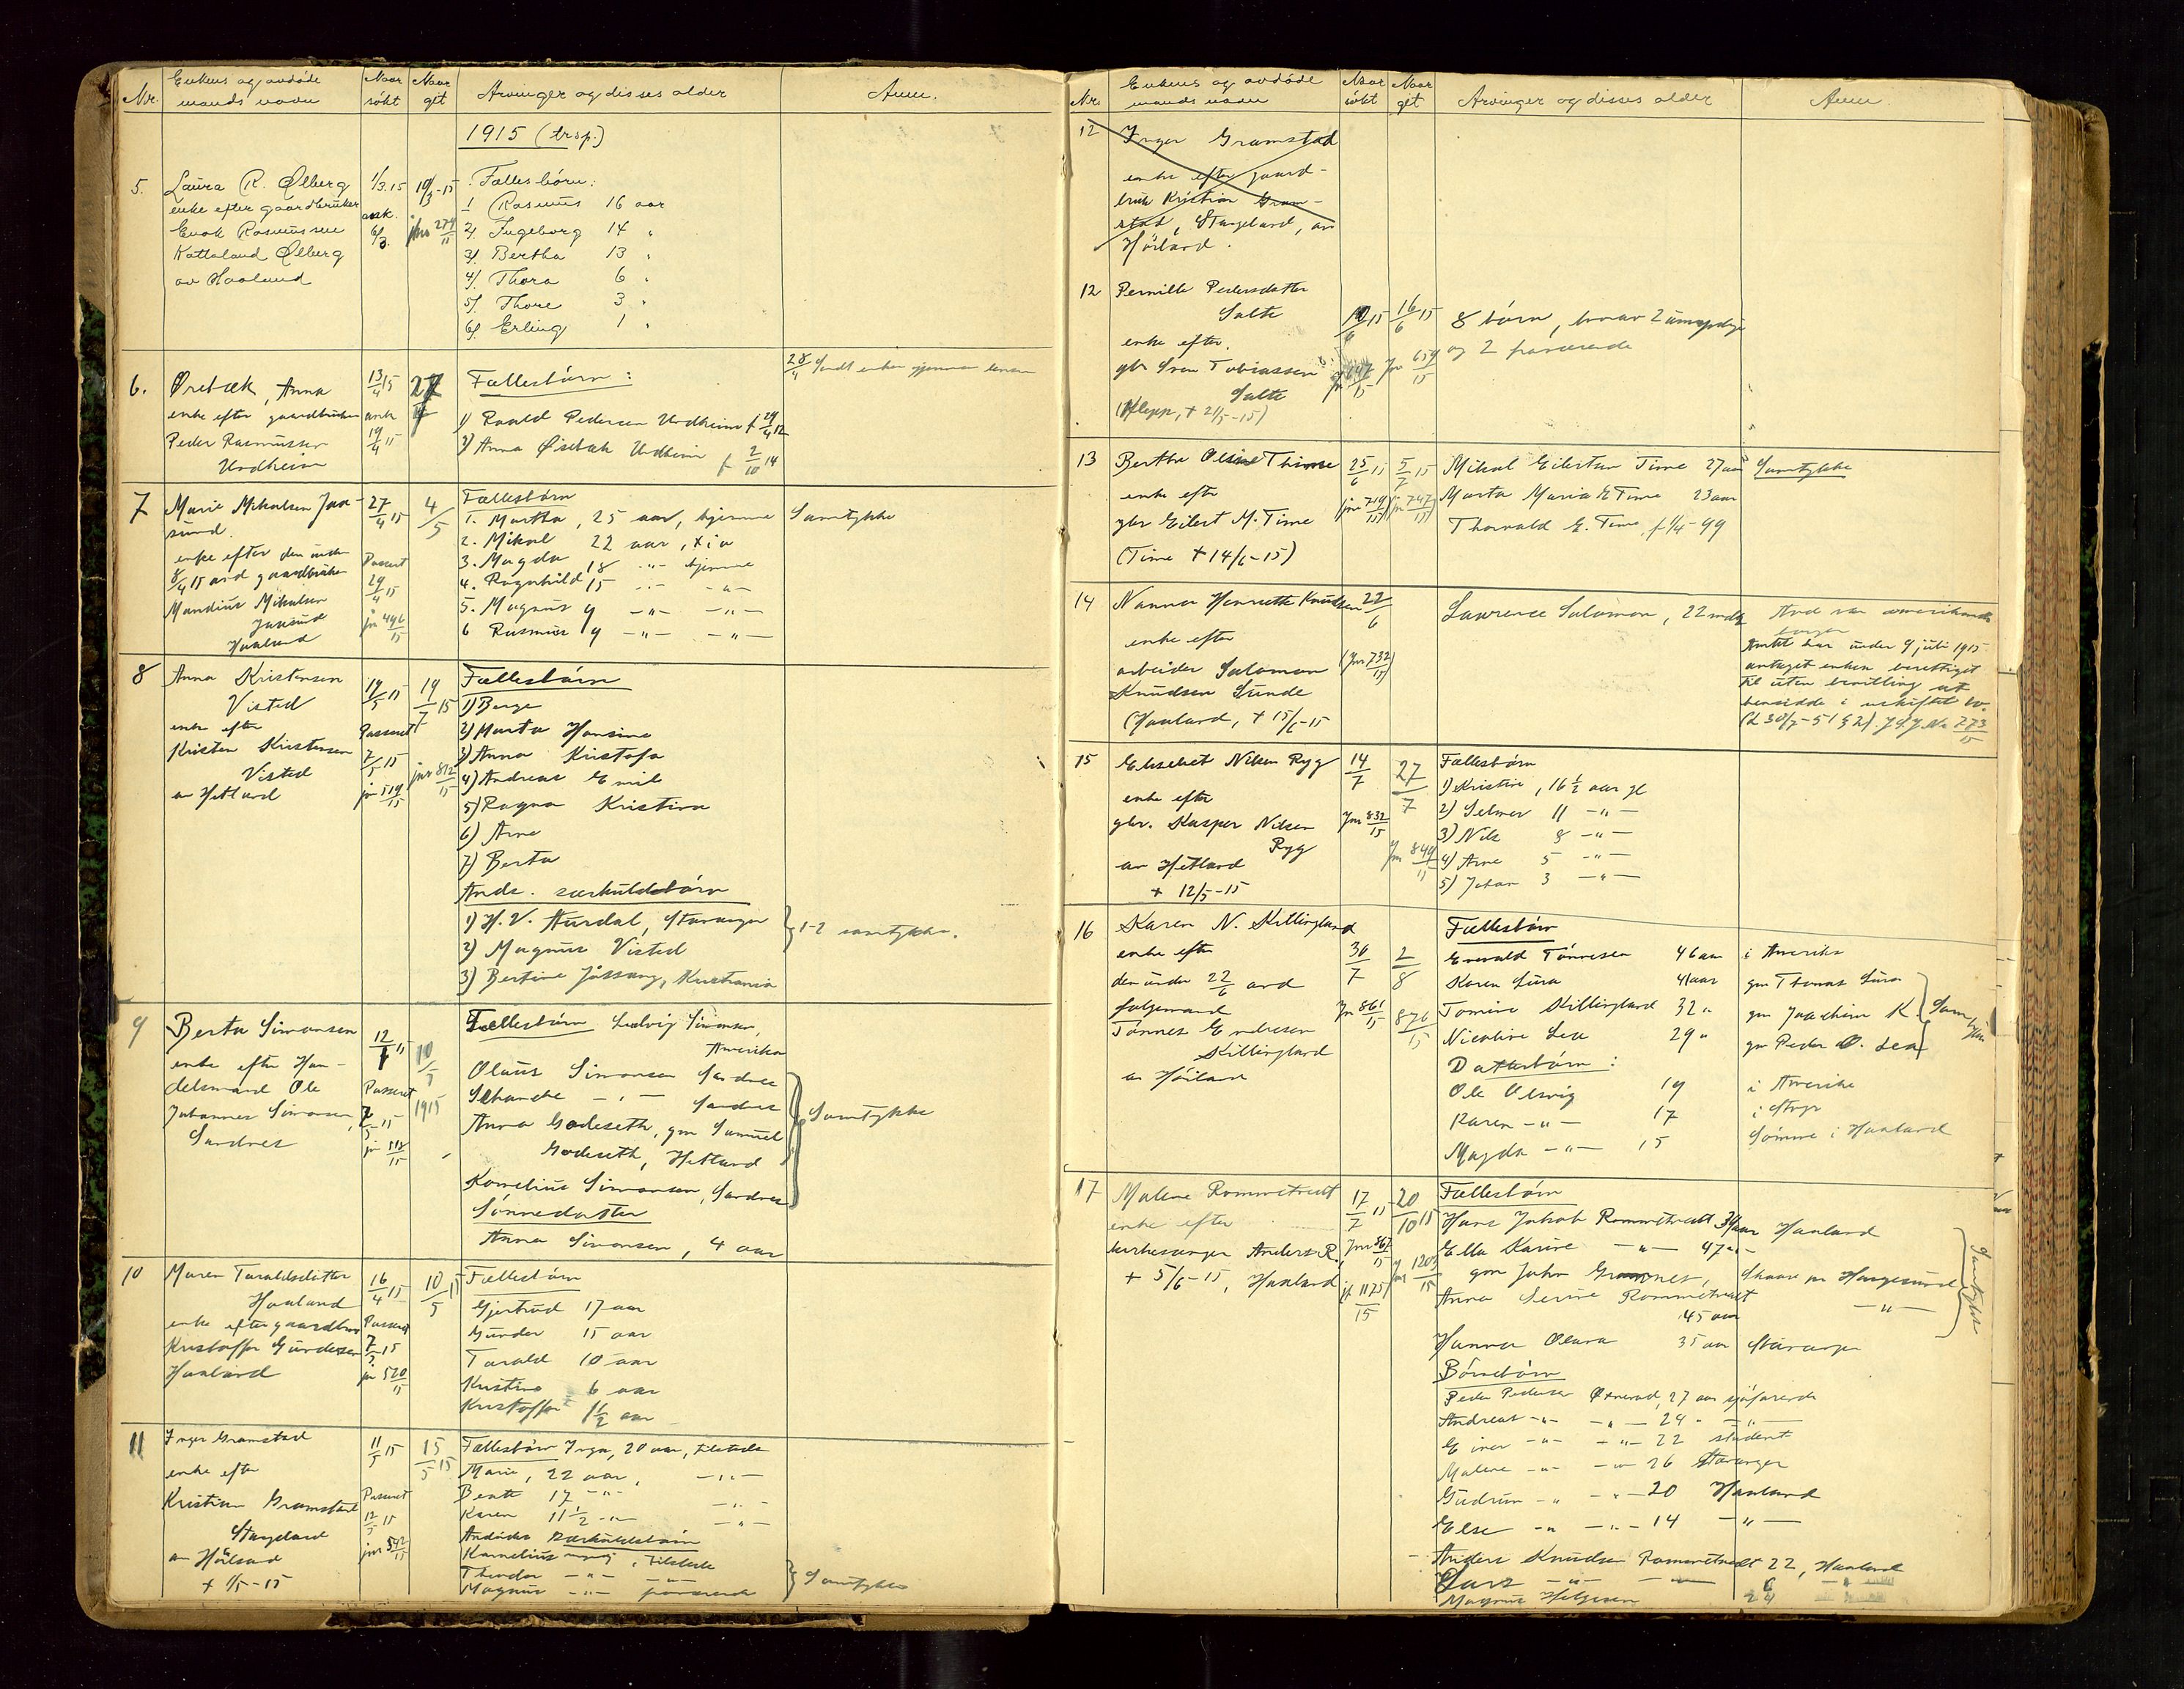 Nr. Enkens og avdøde mands navn Naar søkt Naar git Arvinger og disses alder Anm.
1915 (forts.)
5. Laura R. Ølberg
enke efter gaardbruker
Enok Rasmussen
Kattaland Ølberg
av Haaland
1/3.15
ank. 6/3.
10/3-15
jnr 274/15
Fællesbørn:
1 Rasmus 16 aar
2/. Ingeborg 14 "
3/. Bertha 13 "
4/. Thora 6 "
5/. Thore 3 "
6/. Erling 1 "
6. Ørebæk, Anna
enke efter gaardbruker
Peder Rasmussen
Undheim
13/4 15
ank
19/4 15
27/4
Fællesbørn:
1) Roald Pedersen Undheim f 29/4 12
2) Anna Ørebæk Undheim f. 2/10 14
28/4 Sendt enken gjennem lensm
7 Marie Mikalsen Jaa-
sund.
enke efter den under
8/4 15 avd gaardbruker
Mandius Mikalsen
Jaasund
Haaland
27/4 15
Passert
29/4 15
jnr 496/15
4/5
Fællesbørn
1. Martha, 25 aar, hjemme
2. Mikal 22 aar,
3. Magda 18 -"- hjemme
4. Ragnhild 15 -"- -"-
5. Magnus 9 -"- -"-
6 Rasmus 9 -"- -"-
Samtykke
8 Anna Kristensen
Visted
enke efter
Kristen Kristensen
Visted
av Hetland
19/5 15
Passert
7/5 15
jnr 519/15
19/7 15
jnr 812/15
Fællesbørn
1) Berge
2) Marta Hansine
3) Anna Kristofa
4) Andreas Emil
5) Ragna Kristina
6) Arne
7) Berta
Avds. særkuldsbørn
1) H. V. Aardal, Stavanger
2) Magnus Visted
3) Bertine Jåssang, Kristiania
1-2 samtykke.
9 Berta Simonsen
enke efter Han-
delsmand Ole
Johannes Simonsen,
Sandnes
Passert
10/5 1915
Fællesbørn Ludvig Simonsen,
Amerika
Olaus Simonsen Sandnes
Schanche -"- Sandnes
Anna Godeseth, gm Samuel
Godeseth, Hetland
Kornelius Simonsen, Sandnes
Sønnedatter
Anna Simonsen, 4 aar
Samtykke
10 Maren Taraldsdatter
Haaland
enke efter gaardbr
Kristoffer Gundersen
Haaland
16/4 15
Passert
7/5 15
jnr 520/15
10/5 15
Fællesbørn
Gjertrud 17 aar
Gunder 15 aar
Tarald 10 aar
Kristine 6 aar
Kristoffer 1½ aar
11 Inger Gramstad
enke efter
Kristian Gramstad
Stangeland
av Høiland
+ 1/5-15
11/5 15
Passert
12/5 15
jnr 542/15
15/5 15
Fællesbørn Inga, 20 aar, tilstede
Marie, 22 aar, -"-
Bente 17 -"- -"-
Karen 11½ -"- -"-
Avdødes særkuldsbørn
Kornelius myg, tilstede
Theodor -"- -"-
Magnus -"- fraværende
Samtykke
Nr. Enkens og avdøde mands navn Naar søkt Naar git Arvinger og disses alder Anm
12 Inger Gramstad
enke efter gaard-
bruk Kristian Gram-
stad, Stangeland, av
Høiland.
12 Pernille Pedersdatter
Salte
enke efter.
gbr Sven Tobiassen
Salte
(Klepp, + 21/5-15)
16/6 15
jnr 659/15
8 børn, hvorav 2 umyndige
og 2 fraværende
13 Berthe Olsine Thime
enke efter
gbr Eilert M. Time
(Time + 14/6-15)
25/6 15
jnr 719/15
5/7 15
jnr 747/15
Mikal Eilertsen Time 27 aar
Marta Maria E Time 23 aar
Thorvald E. Time, f. 1/4-99
Samtykke
14 Nanna Henriette Knudsen
enke efter
arbeider Salomon
Knudsen Sunde
(Haaland, + 15/6-15
22/6
(Jnr 732/15)
Lawrence Salomon, 22 mdr
Avd var amerikansk
borger
Amtet har under 9 juli 1915
antaget enken berettiget
til uten bevilling at
hensidde i uskiftet bo.
(L 30/7-51 § 2). J. d. J. No 273/15
15 Elisabet Nilsen Ryg
enke efter
gbr. Kasper Nilsen
Ryg
av Hetland
+ 12/5-15
14/7
Jnr 832/15
27/7
Jnr 849/15
Fællesbørn
1) Kristine, 16½ aar gl
2) Selmer 11 -"-
3) Nils 8 -"-
4) Arne 5 -"-
5) Johan 3 -"-
16 Karen N. Skillingland
enke efter
den under 22/6 avd
følgemand
Tønnes Endresen
Skillingland
av Høiland
30/7
Jnr 861/15
2/8
876/15
Fællesbørn
Enevald Tønnesen 46 aar i Amerika
Karen Lura 41 aar gm Thomas Lura
Tomine Skillingland 32 " gm Joachim K
Nicoline Lea 29 " gm Peder O. Lea
Samtykke
Datterbørn:
Ole Olsvig 19 i Amerika
Karen -"- 17 i Stvgr
Magda -"- 15 Sømme i Haaland
17 Malene Rommetvedt
enke efter
kirkesanger Anders R.
+ 5/6-15, Haaland
17/7 15
Jnr 867/15
jf 1175/15
20/10 15
jnr 1203/15
Fællesbørn
Hans Jakob Rommetvedt aar Haaland
Ella Karine -"- 47 "-
gm John Grannes, Skaare pr Haugesund
Anna Serine Rommetvedt
45 aar -"-
Hanna Olava 35 aar Stavanger
Samtykke
Børnebørn
Peder Pedersen 27 aar sjøfarende
Andreas -"- -"- 24 " -"-
Einar -"- -"- 22 student
Malene -"- -"- 26 Stavanger
Gudrun -"- -"- 20 Haaland
Else -"- -"- 14 -"-
Anders Knudsen Rommetvedt 22, Haaland
Lars -"- -"-
Magnus Helgesen 24